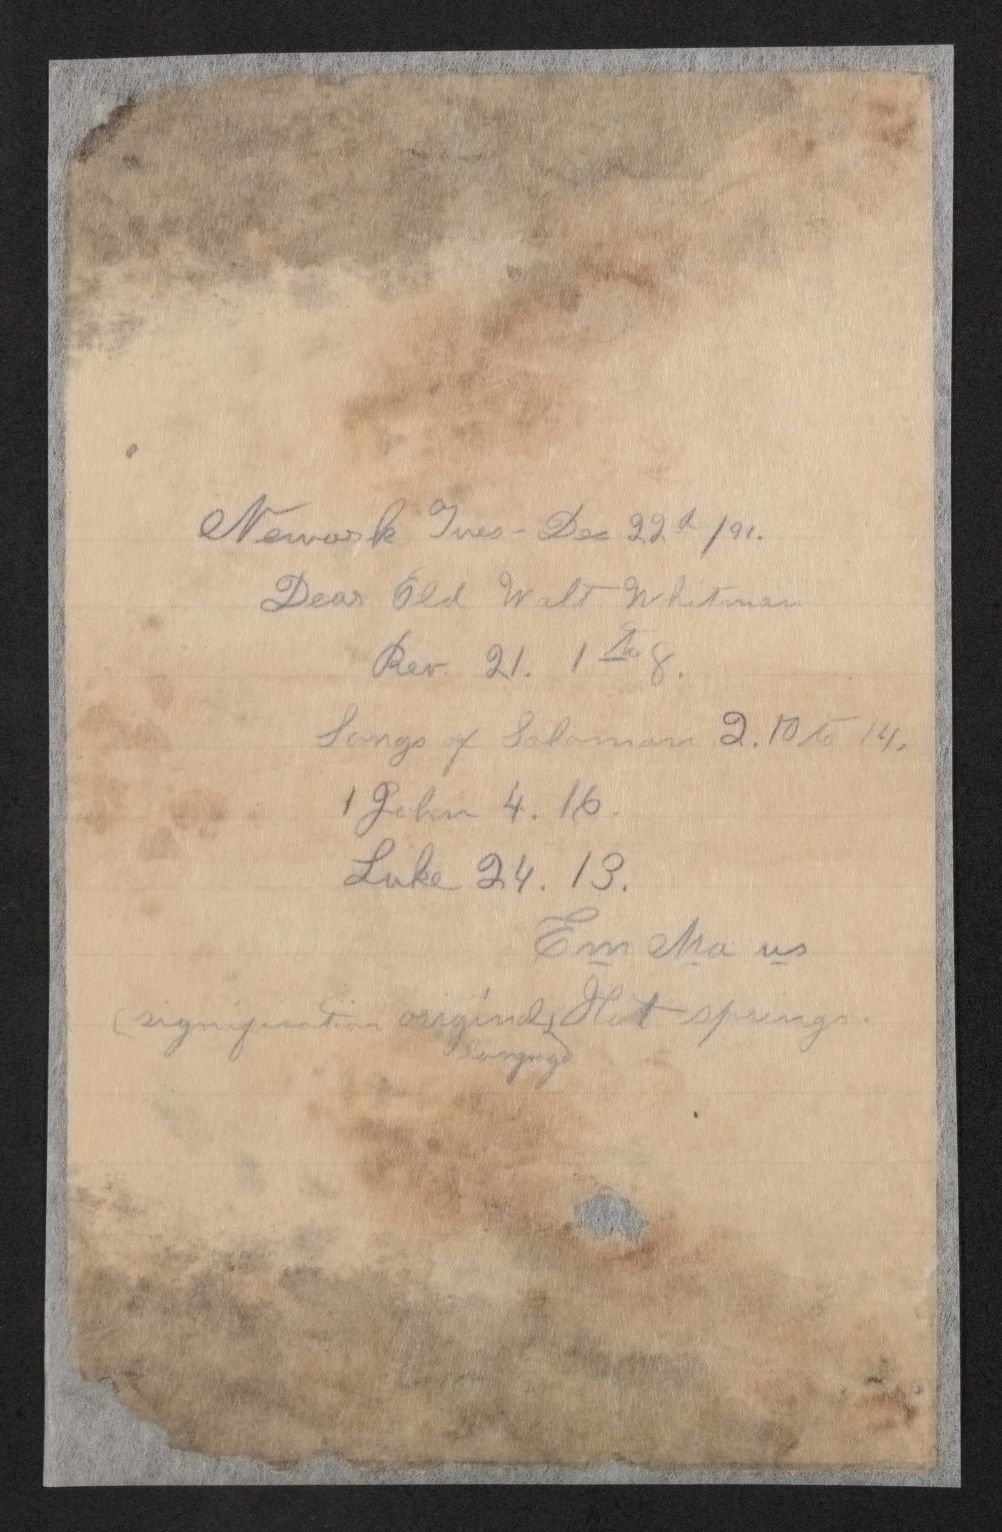 Newark Tues - Dec 22d /91.
Dear Old Walt Whitman
Rev. 21. 1 to 8.
Songs of Solomon 2. 10 to 14.
1 John 4. 16.
Luke 24. 13.
Em Ma us
(signification original Hot springs.
langage